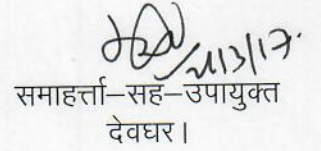 21/3/17.
समाहर्त्ता–सह–उपायुक्त
देवघर।